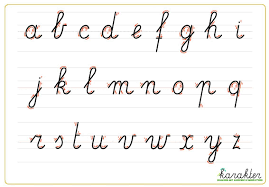 a b c d e f g h i
j k l m n o p q
r s t u v w x y z
karakter